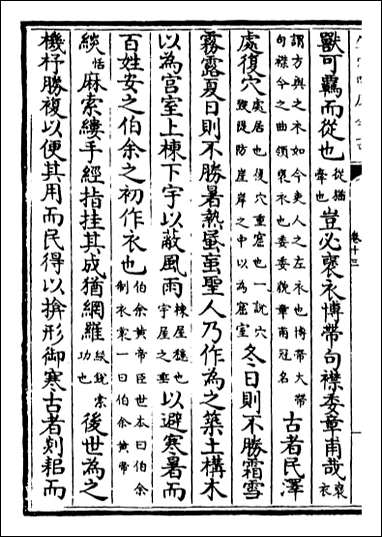 卷十三
獸可羈而從也從猶牽也豈必褒衣博帶句襟委章甫哉褒衣
謂方與之衣如今吏人之左衣也博帶大帶句襟今之曲領褒衣也委委貌章甫冠名古者民澤
處復穴處居也復穴重窟也一說穴毀隄防崖岸之中以為窟室冬日則不勝霜雪
霧露夏日則不勝暑熱蚉蝱聖人乃作為之築土構木
以為宮室上棟下宇以蔽風雨棟屋檼也宇屋之垂以避寒暑而
百姓安之伯余之初作衣也伯余黃帝臣世本曰伯余制衣裳一曰伯余黃帝
緂恬麻索縷手經指挂其成猶網羅緂銳索功也後世為之
機杼勝複以便其用而民得以揜形御寒古者剡耜而